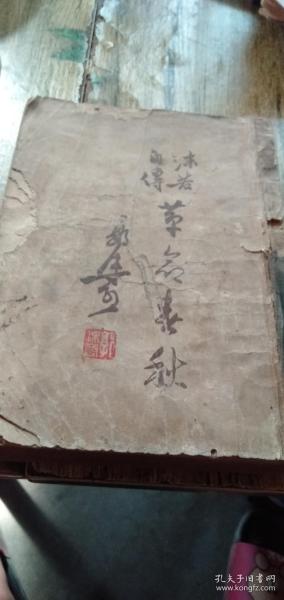 沫若
自傳
革命春秋
孔夫子旧书网
www.kongfz.com